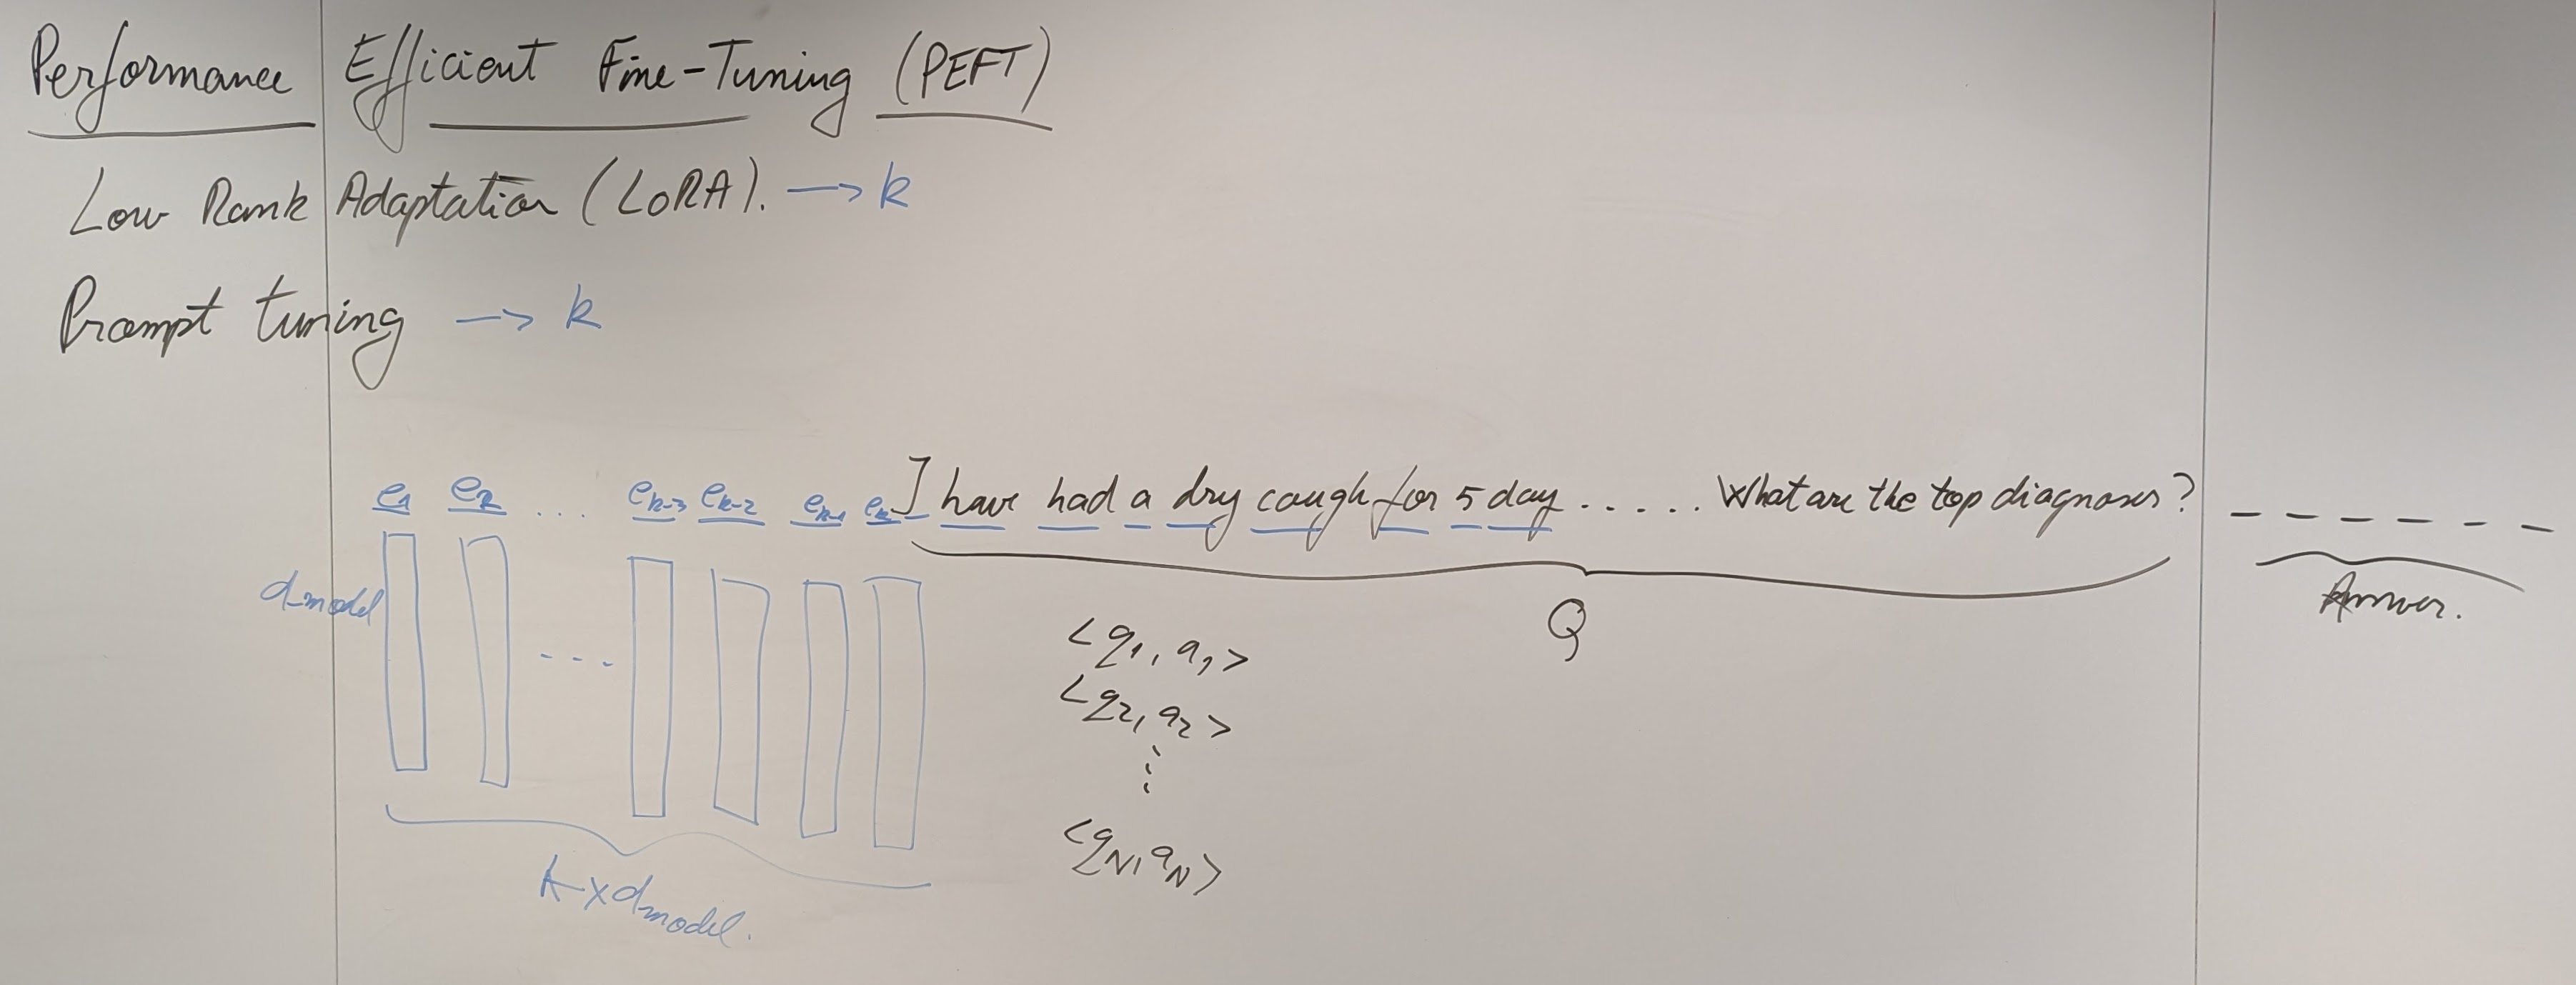 Performance Efficient Fine-Tuning (PEFT)
Low Rank Adaptation (LoRA). → k
Prompt tuning → k
e1 e2 .... ek-3 ek-2 ek-1 ek I have had a dry cough for 5 day ..... What are the top diagnoses? _ _ _ _ _ _
d_model
Q
Answer.
<q1, a1>
<q2, a2>
⋮
<qN, aN>
k × d_model.